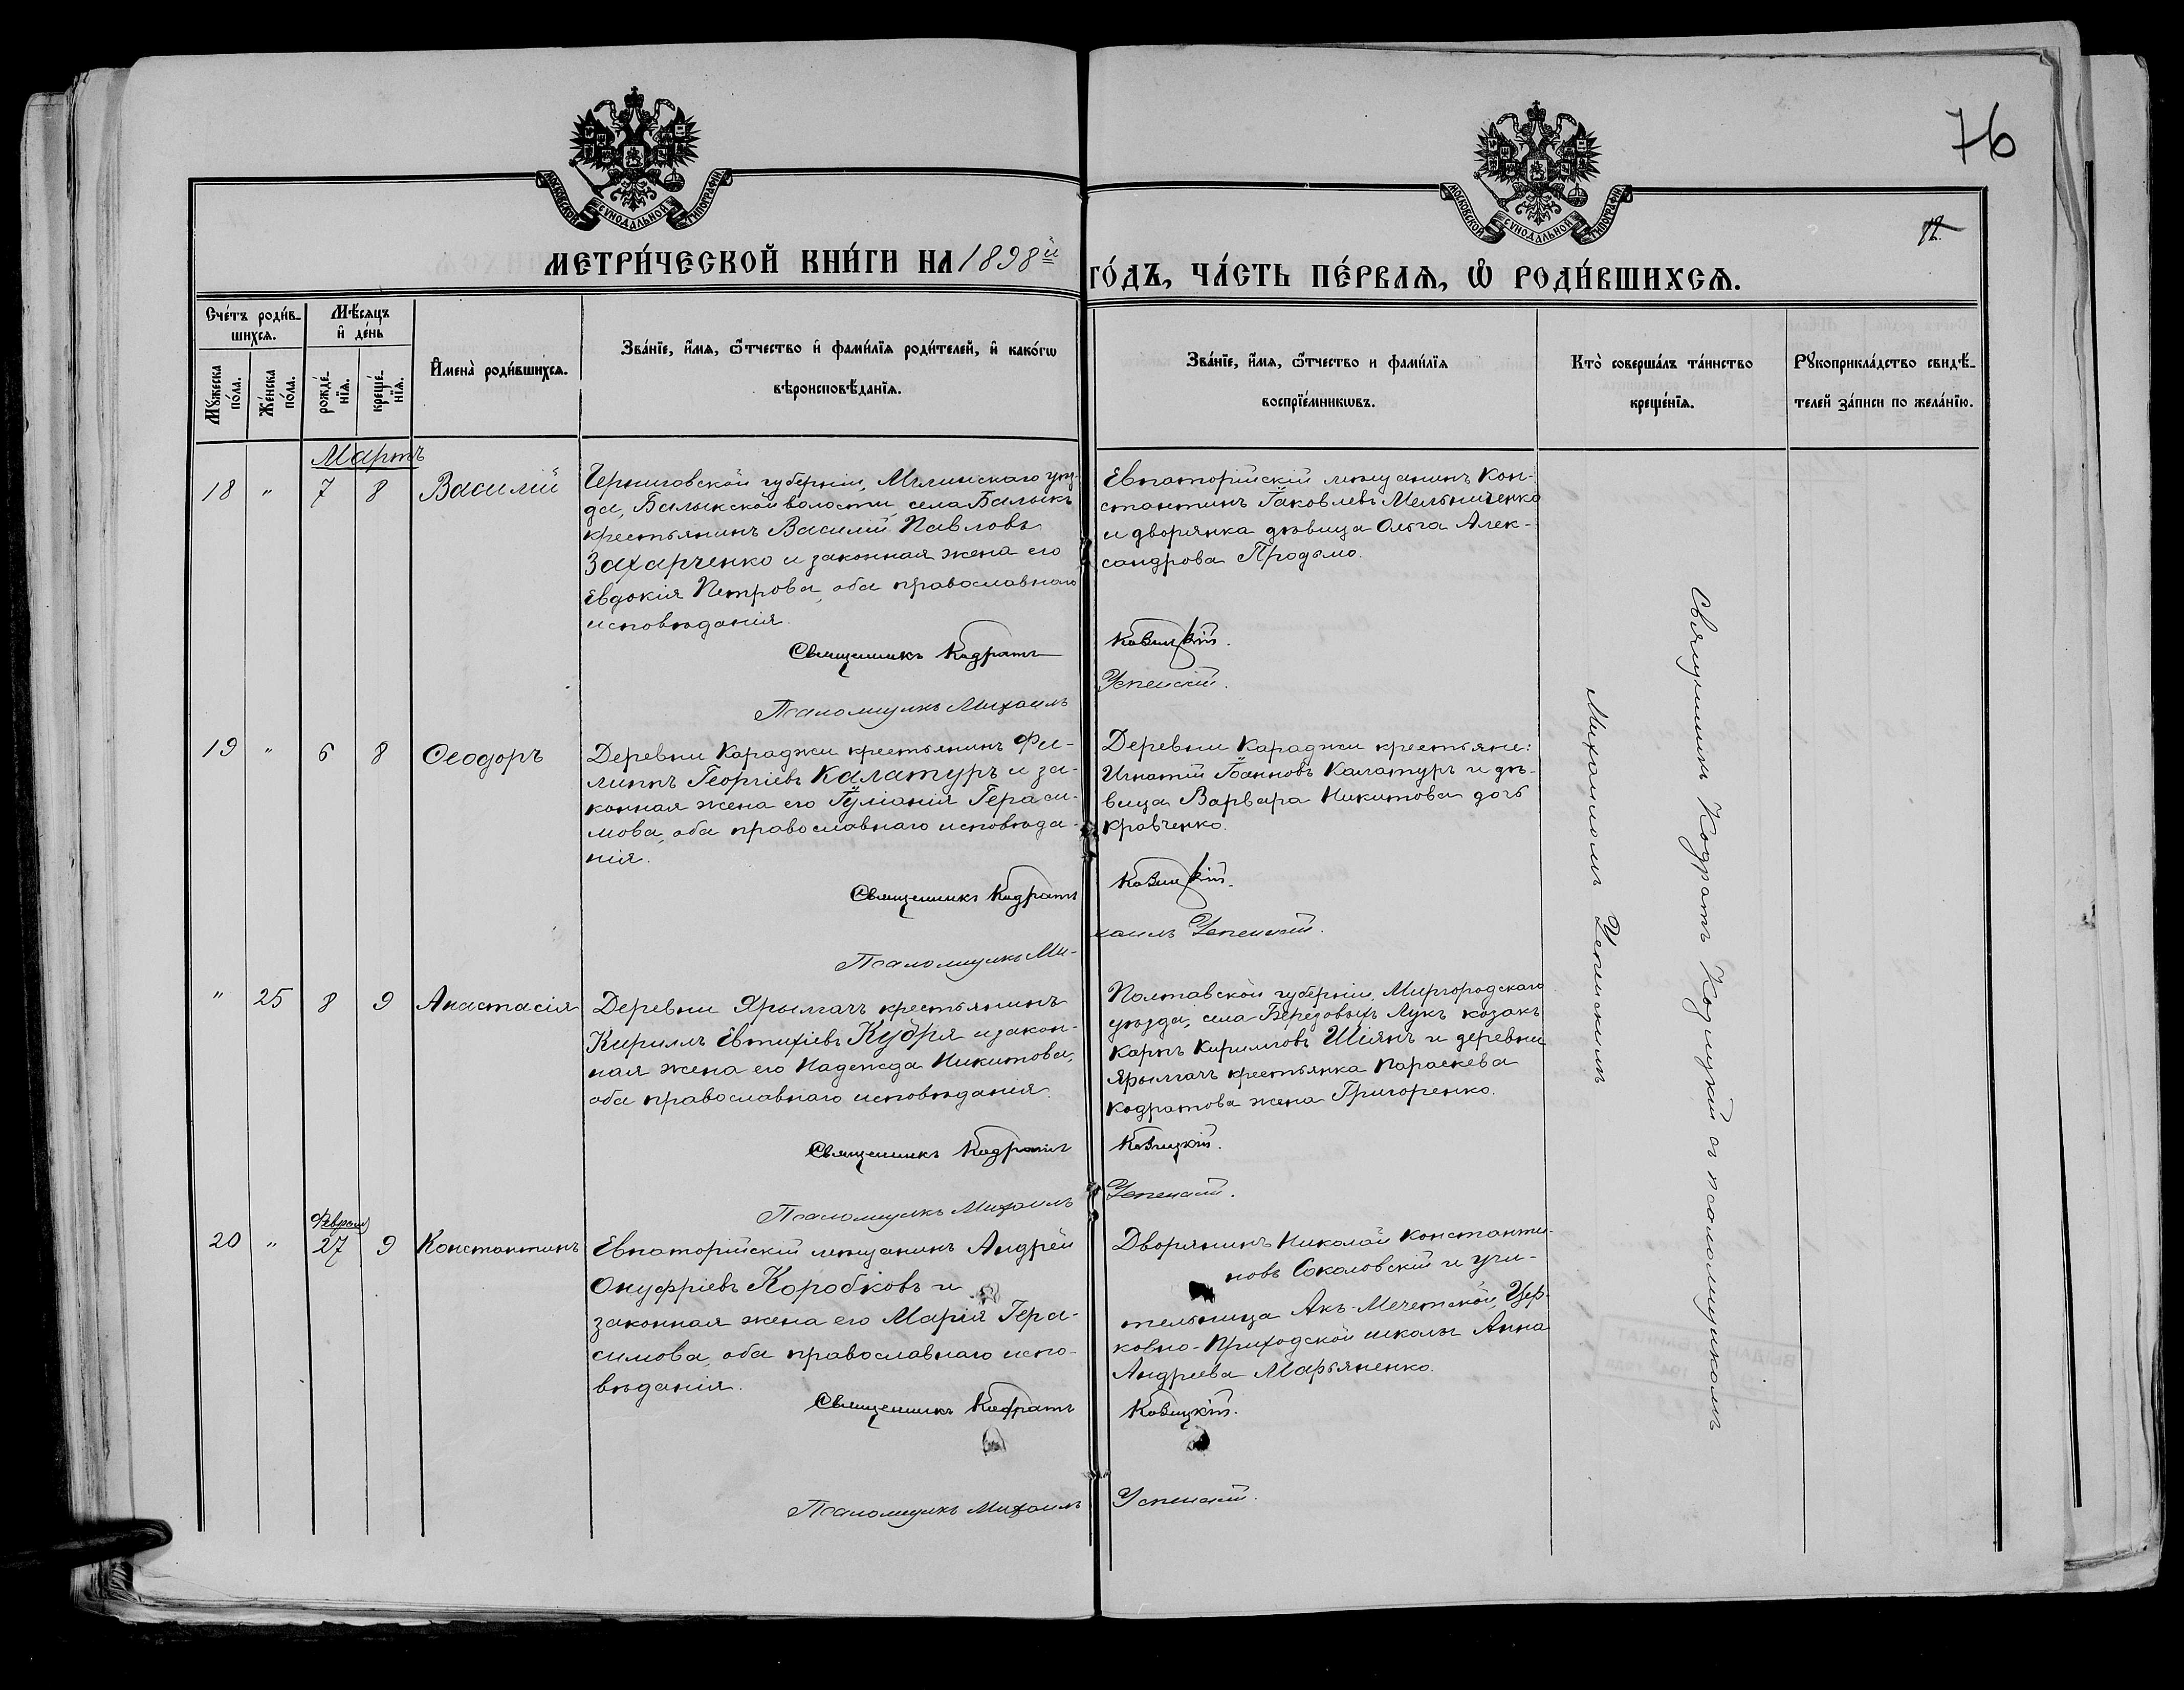 76
12.
МОСКОВСКОЙ СѴНОДАЛЬНОЙ ТИПОГРАФІИ
МОСКОВСКОЙ СѴНОДАЛЬНОЙ ТИПОГРАФІИ
МЕТРИ́ЧЕСКОЙ КНИ́ГИ НА 1898й
ГО́ДЪ, ЧА́СТЬ ПЕ́РВАѦ, Ѡ҆ РОДИ́ВШИХСѦ.
Сче́тъ роди́в-
шихсѧ.
Мꙋ́жеска по́ла.
Же́нска по́ла.
Мѣ́сѧцъ
и҆ де́нь
рожде́-
нїѧ.
креще́-
нїѧ.
И҆мена̀ роди́вшихсѧ.
Зва́нїе, и҆́мѧ, ѻ҆́тчество и҆ фами́лїѧ роди́телей, и҆ како́гѡ
вѣроисповѣ́данїѧ.
Зва́нїе, и҆́мѧ, ѻ҆́тчество и фами́лїѧ
воспрїе́мникѡвъ.
Кто̀ соверша́лъ та́инство
креще́нїѧ.
Рꙋкоприкла́дство свидѣ́-
телей за́писи по жела́нїю.
Мартъ
18 " 7 8 Василій
Черниговской губерніи, Мглинскаго уѣз-
да, Балыкской волости, села Балыкъ
крестьянинъ Василій Павловъ
Захарченко и законная жена его
Евдокія Петрова, оба православнаго
исповѣданія.
Священникъ Кодратъ
Псаломщикъ Михаилъ
Евпаторійскій мѣщанинъ Кон-
стантинъ Іаковлевъ Мельниченко
и дворянка дѣвица Ольга Алек-
сандрова Продьмо.
Козицкій.
Успенскій.
19 " 6 8 Ѳеодоръ
Деревни Караджи крестьянинъ Фи-
липпъ Георгіевъ Калатуръ и за-
конная жена его Іуліанія Гераси-
мова, оба православнаго исповѣда-
нія.
Священникъ Кодратъ
Псаломщикъ Ми-
Деревни Караджи крестьяне:
Игнатій Іоанновъ Калатуръ и дѣ-
вица Варвара Никитова дочь
Кравченко.
Козицкій.
хаилъ Успенскій.
" 25 8 9 Анастасія
Деревни Ярылгачъ крестьянинъ
Кириллъ Евтихіевъ Кудря и закон-
ная жена его Надежда Никитова,
оба православнаго исповѣданія.
Священникъ Кодратъ
Псаломщикъ Михаилъ
Полтавской губерніи, Миргородскаго
уѣзда, села Березовыхъ Лукъ козакъ
Карпъ Кирилловъ Шіянъ и деревни
Ярылгачъ крестьянка Параскева
Кодратова жена Григоренко.
Козицкій.
Успенскій.
Февраля
20 " 27 9 Константинъ
Евпаторійскій мѣщанинъ Андрей
Онуфріевъ Коробковъ и
законная жена его Марія Гера-
симова, оба православнаго испо-
вѣданія.
Священникъ Кодратъ
Псаломщикъ Михаилъ
Дворянинъ Николай Константи-
новъ Соколовскій и учи-
тельница Акъ-Мечетской, Цер-
ковно-Приходской школы Анна
Андреева Марьяненко.
Козицкій.
Успенскій.
Священникъ Кодратъ Козицкій съ псаломщикомъ
Михаиломъ Успенскимъ